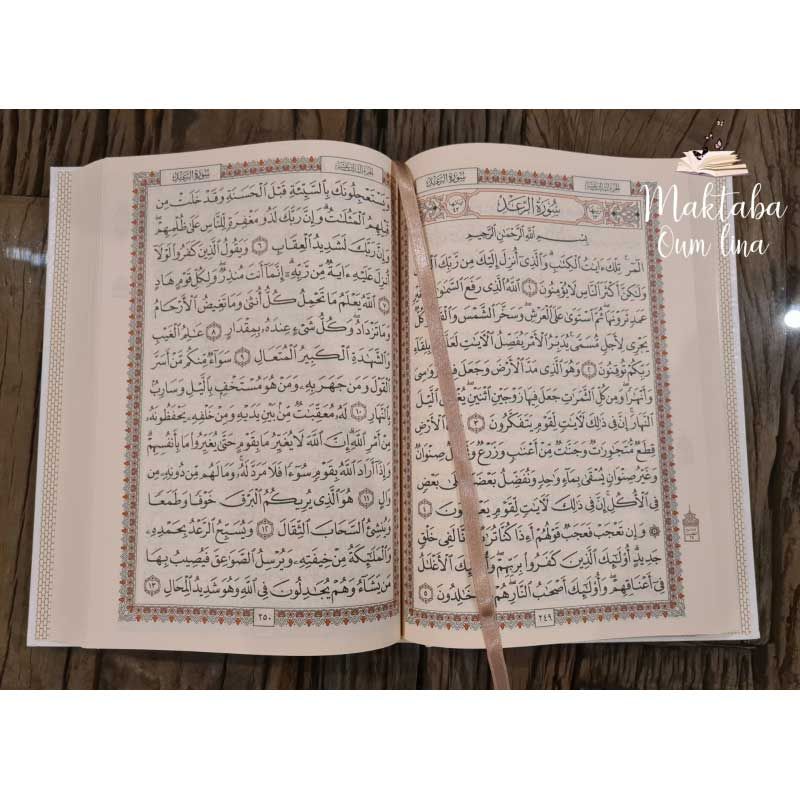 سُورَةُ الرَّعْدِ
سُورَةُ الرَّعْدِ
بِسْمِ ٱللَّهِ ٱلرَّحْمَٰنِ ٱلرَّحِيمِ
الٓمٓر ۚ تِلْكَ ءَايَٰتُ ٱلْكِتَٰبِ ۗ وَٱلَّذِىٓ أُنزِلَ إِلَيْكَ مِن رَّبِّكَ
وَلَٰكِنَّ أَكْثَرَ ٱلنَّاسِ لَا يُؤْمِنُونَ ١ ٱللَّهُ ٱلَّذِى رَفَعَ ٱلسَّمَٰوَٰتِ
عَمَدٍ تَرَوْنَهَا ۖ ثُمَّ ٱسْتَوَىٰ عَلَى ٱلْعَرْشِ ۖ وَسَخَّرَ ٱلشَّمْسَ وَٱلْقَمَرَ ۖ كُلٌّ
يَجْرِى لِأَجَلٍ مُّسَمًّى ۚ يُدَبِّرُ ٱلْأَمْرَ يُفَصِّلُ ٱلْءَايَٰتِ لَعَلَّكُم بِلِقَآءِ
رَبِّكُمْ تُوقِنُونَ ٢ وَهُوَ ٱلَّذِى مَدَّ ٱلْأَرْضَ وَجَعَلَ فِيهَا رَوَٰسِىَ
وَأَنْهَٰرًا ۖ وَمِن كُلِّ ٱلثَّمَرَٰتِ جَعَلَ فِيهَا زَوْجَيْنِ ٱثْنَيْنِ ۖ يُغْشِى ٱلَّيْلَ
ٱلنَّهَارَ ۚ إِنَّ فِى ذَٰلِكَ لَءَايَٰتٍ لِّقَوْمٍ يَتَفَكَّرُونَ ٣ ٱلْأَرْضِ
قِطَعٌ مُّتَجَٰوِرَٰتٌ وَجَنَّٰتٌ مِّنْ أَعْنَٰبٍ وَزَرْعٌ صِنْوَانٌ
وَغَيْرُ صِنْوَانٍ يُسْقَىٰ بِمَآءٍ وَٰحِدٍ وَنُفَضِّلُ بَعْضَهَا عَلَىٰ بَعْضٍ
فِى ٱلْأُكُلِ ۚ إِنَّ فِى ذَٰلِكَ لَءَايَٰتٍ لِّقَوْمٍ يَعْقِلُونَ ٤
۞ وَإِن تَعْجَبْ فَعَجَبٌ قَوْلُهُمْ أَءِذَا كُنَّا تُرَٰبًا لَفِى خَلْقٍ
جَدِيدٍ ۗ أُو۟لَٰٓئِكَ ٱلَّذِينَ كَفَرُوا۟ بِرَبِّهِمْ ۖ وَأُو۟لَٰٓئِكَ ٱلْأَغْلَٰلُ
فِىٓ أَعْنَاقِهِمْ ۖ وَأُو۟لَٰٓئِكَ أَصْحَٰبُ ٱلنَّارِ ۖ هُمْ خَٰلِدُونَ ٥
٢٤٩
سُورَةُ الرَّعْدِ
وَيَسْتَعْجِلُونَكَ بِٱلسَّيِّئَةِ قَبْلَ ٱلْحَسَنَةِ وَقَدْ خَلَتْ مِن
قَبْلِهِمُ ٱلْمَثُلَٰتُ ۗ وَإِنَّ رَبَّكَ لَذُو مَغْفِرَةٍ لِّلنَّاسِ عَلَىٰ ظُلْمِهِمْ ۖ
وَإِنَّ رَبَّكَ لَشَدِيدُ ٱلْعِقَابِ ٦ وَيَقُولُ ٱلَّذِينَ كَفَرُوا۟ لَوْلَآ
أُنزِلَ عَلَيْهِ ءَايَةٌ مِّن رَّبِّهِۦٓ ۗ إِنَّمَآ أَنتَ مُنذِرٌ ۖ وَلِكُلِّ قَوْمٍ هَادٍ
٧ ٱللَّهُ يَعْلَمُ مَا تَحْمِلُ كُلُّ أُنثَىٰ وَمَا تَغِيضُ ٱلْأَرْحَامُ
وَمَا تَزْدَادُ ۖ وَكُلُّ شَىْءٍ عِندَهُۥ بِمِقْدَارٍ ٨ عَٰلِمُ ٱلْغَيْبِ
وَٱلشَّهَٰدَةِ ٱلْكَبِيرُ ٱلْمُتَعَالِ ٩ سَوَآءٌ مِّنكُم مَّنْ أَسَرَّ
ٱلْقَوْلَ وَمَن جَهَرَ بِهِۦ وَمَنْ هُوَ مُسْتَخْفٍۭ بِٱلَّيْلِ وَسَارِبٌۢ
بِٱلنَّهَارِ ١٠ لَهُۥ مُعَقِّبَٰتٌ مِّنۢ بَيْنِ يَدَيْهِ وَمِنْ خَلْفِهِۦ يَحْفَظُونَهُۥ
مِنْ أَمْرِ ٱللَّهِ ۗ إِنَّ ٱللَّهَ لَا يُغَيِّرُ مَا بِقَوْمٍ حَتَّىٰ يُغَيِّرُوا۟ مَا بِأَنفُسِهِمْ ۗ
وَإِذَآ أَرَادَ ٱللَّهُ بِقَوْمٍ سُوٓءًا فَلَا مَرَدَّ لَهُۥ ۚ وَمَا لَهُم مِّن دُونِهِۦ مِن
وَالٍ ١١ هُوَ ٱلَّذِى يُرِيكُمُ ٱلْبَرْقَ خَوْفًا وَطَمَعًا
وَيُنشِئُ ٱلسَّحَابَ ٱلثِّقَالَ ١٢ وَيُسَبِّحُ ٱلرَّعْدُ بِحَمْدِهِۦ
وَٱلْمَلَٰٓئِكَةُ مِنْ خِيفَتِهِۦ وَيُرْسِلُ ٱلصَّوَٰعِقَ فَيُصِيبُ بِهَا
مَن يَشَآءُ وَهُمْ يُجَٰدِلُونَ فِى ٱللَّهِ وَهُوَ شَدِيدُ ٱلْمِحَالِ ١٣
٢٥٠
Maktaba
Oum lina